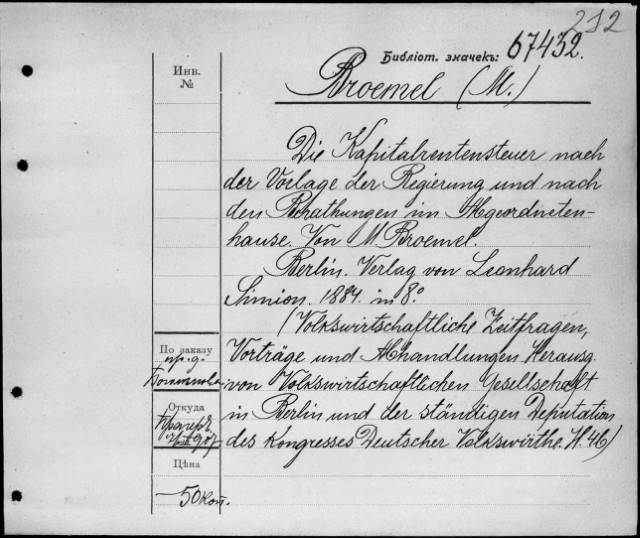 212
Библіот. значекъ: 67432.
Инв.
№
Broemel (M.)
Die Kapitalrentensteuer nach
der Vorlage der Regierung und nach
den Berathungen im Abgeordneten-
hause. Von M. Broemel.
Berlin. Verlag von Leonhard
Simion. 1884. in 8°.
(Volkswirtschaftliche Zeitfragen,
Vorträge und Abhandlungen. Herausg.
von Volkswirtschaftlichen Gesellschaft
in Berlin und der ständigen Deputation
des Kongresses Deutscher Volkswirthe. H. 46)
По заказу
пр. д.
Откуда
Цѣна
— 50 коп.